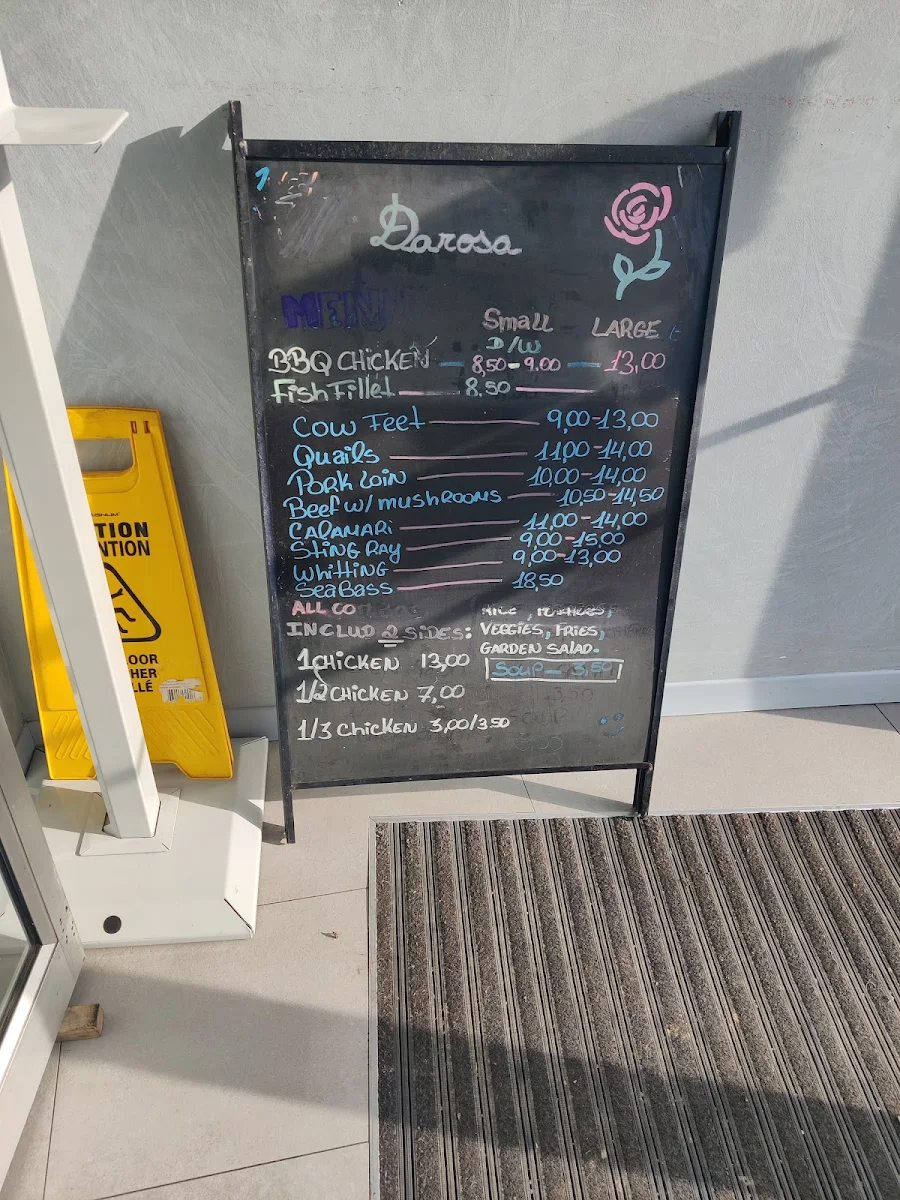 Darosa
MENU
Small LARGE
D/W
BBQ CHICKEN 8,50-9.00 13,00
Fish Fillet 8.50
Cow Feet 9,00-13,00
Quails 11,00-14,00
Pork Loin 10,00-14,00
Beef w/ mushrooms 10,50-14,50
CALAMARI 11,00-14,00
Sting Ray 9,00-15,00
Whitting 9,00-13,00
SeaBass 18,50
ALL CO
INCLUD 2 SIDES:
RICE, POTATOES,
VEGGIES, FRIES,
GARDEN SALAD.
SOUP - 3,50
1 CHICKEN 13,00
1/2 CHICKEN 7,00
1/3 CHICKEN 3,00/350
TION
NTION
OOR
HER
LLÉ